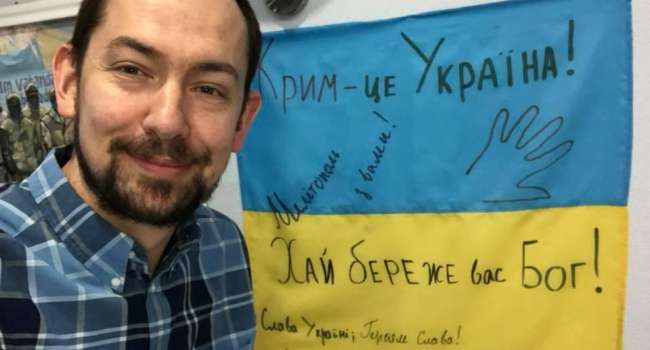 Крим-це Україна!
Мелітополь
з вами!
Хай береже вас Бог!
Слава Україні; Героям Слава!